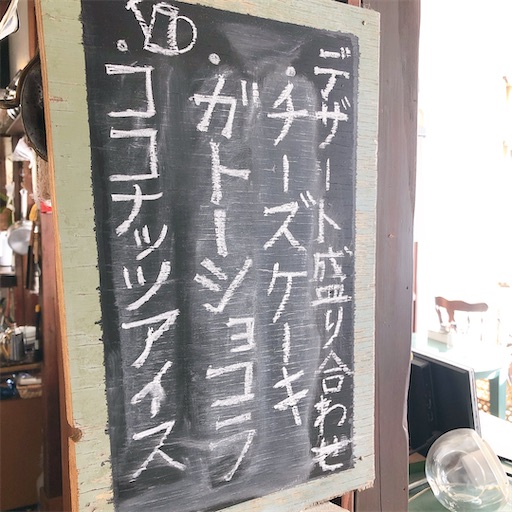 デザート盛り合わせ
・チーズケーキ
・ガトーショコラ
・ココナッツアイス